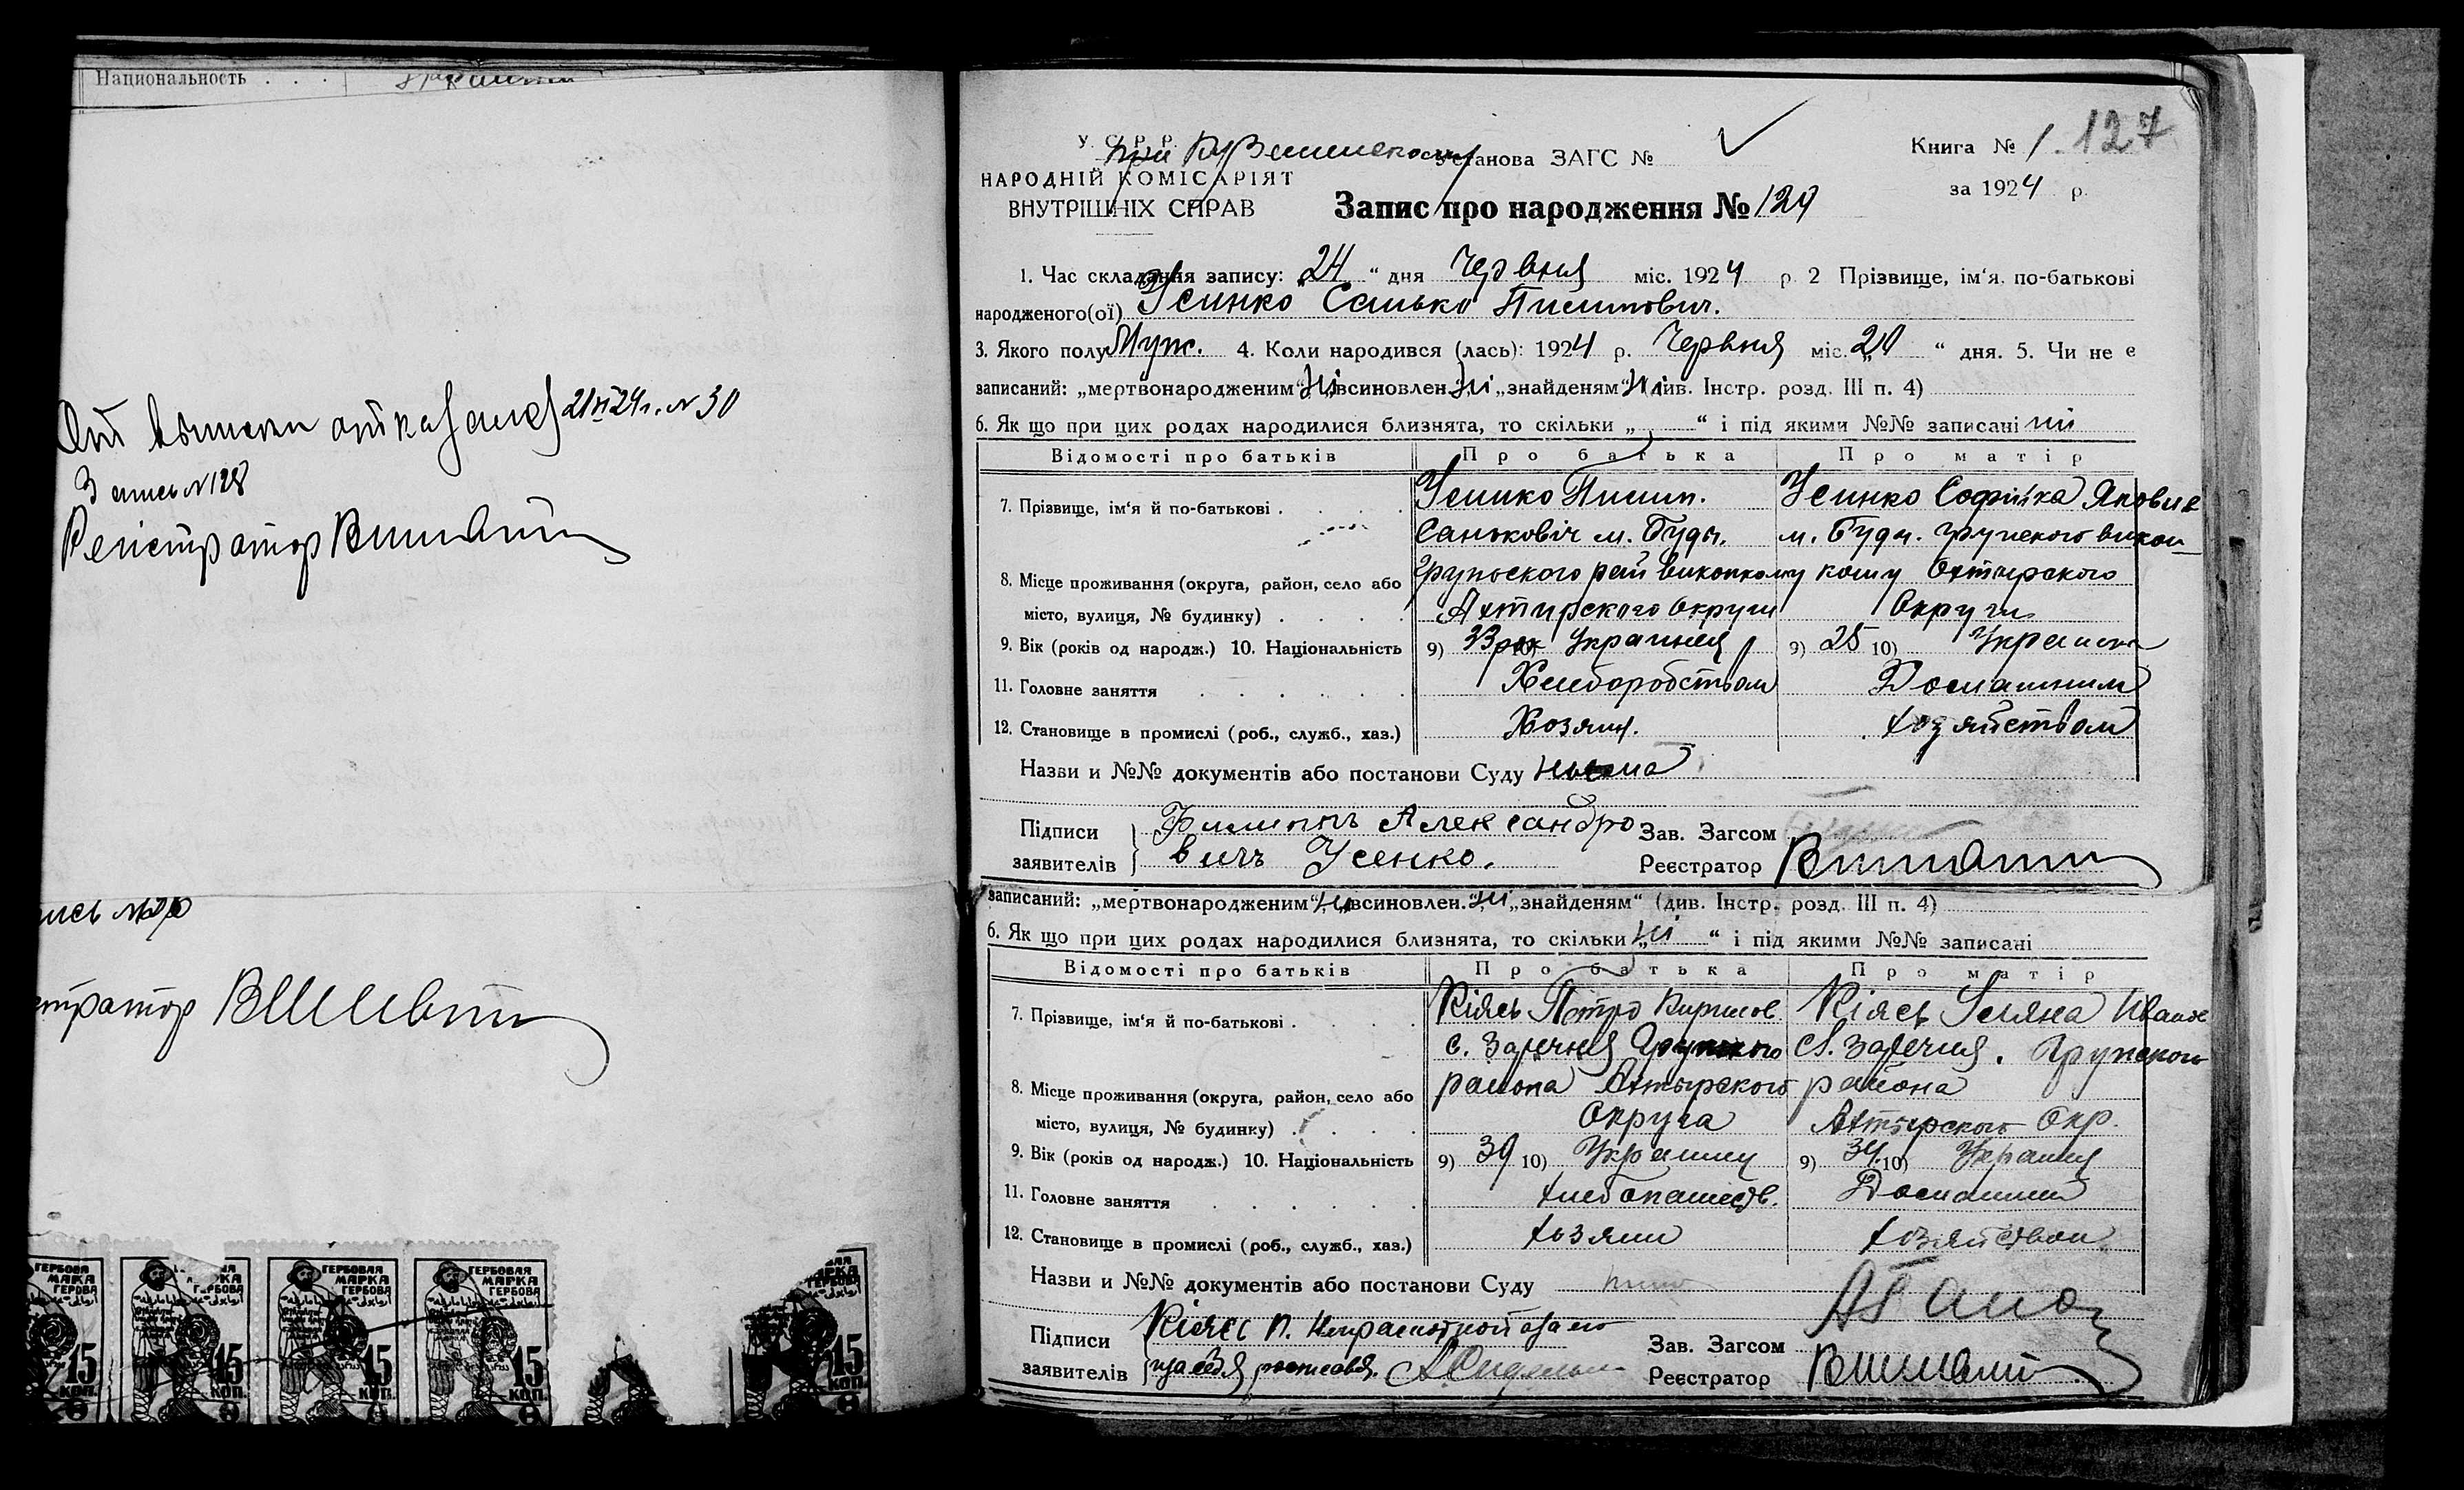 Национальность . . .
От выписки отказался 21 VI 24 г. № 30
Запись № 128
Регистратор
ись №
стратор
ГЕРБОВАЯ
МАРКА
ГЕРБОВА
15
КОП.
ГЕРБОВАЯ
МАРКА
ГЕРБОВА
15
КОП.
ГЕРБОВАЯ
МАРКА
ГЕРБОВА
15
КОП.
15
КОП.
У. С. Р. Р.
при
Установа ЗАГС №
Книга № 1. 127
НАРОДНІЙ КОМІСАРІЯТ
ВНУТРІШНІХ СПРАВ
за 1924 р.
Запис про народження № 129
1. Час складання запису: „24“ дня Червня міс. 1924 р. 2 Прізвище, ім‘я, по-батькові
народженого(ої) Усинко Санько Пилипович.
3. Якого полу Муж. 4. Коли народився (лась): 1924 р. Червня міс. „20“ дня. 5. Чи не є
записаний: „мертвонародженим“ ні, „всиновлен.“ ні „знайденям“ ні (див. Інстр. розд. III п. 4)
6. Як що при цих родах народилися близнята, то скільки „ “ і під якими №№ записані ні
Відомості про батьків Про батька Про матір
7. Прізвище, ім‘я й по-батькові . . . . Усинко Пилип. Усинко Софійка Яковив
Саньковіч м. Буди. м. Буди. Грунского викон
8. Місце проживання (округа, район, село або Груньского рай виконкому кому Охтирского
місто, вулиця, № будинку) . . . . Ахтирского Округи Округи
9. Вік (років од народж.) 10. Національність 9) 33 рок 10) Украинец 9) 25 10) Украинка
11. Головне заняття . . . . . . Хлеборобством Домашним
12. Становище в промислі (роб., служб., хаз.) Хозяин. хозяйством
Назви и №№ документів або постанови Суду нема
Підписи Филиппъ Александро Зав. Загсом
заявителів вичъ Усенко. Реєстратор
записаний: „мертвонародженим“ ні, „всиновлен.“ ні „знайденям“ (див. Інстр. розд. III п. 4)
6. Як що при цих родах народилися близнята, то скільки „ні“ і під якими №№ записані
Відомості про батьків Про батька Про матір
7. Прізвище, ім‘я й по-батькові . . . . Кіясь Петро Кирилов. Кіясь Ивано
с. Заречня Грунского с. Заречня. Грунского
8. Місце проживання (округа, район, село або района Ахтырского района
місто, вулиця, № будинку) . . . . Округа Ахтырского Окр.
9. Вік (років од народж.) 10. Національність 9) 39 10) Украинец 9) 34 10) Украинец
11. Головне заняття . . . . . . хлебопашеств. Домашним
12. Становище в промислі (роб., служб., хаз.) хозяин хозяйством
Назви и №№ документів або постанови Суду
Підписи Кіяс П. Зав. Загсом
заявителів Реєстратор